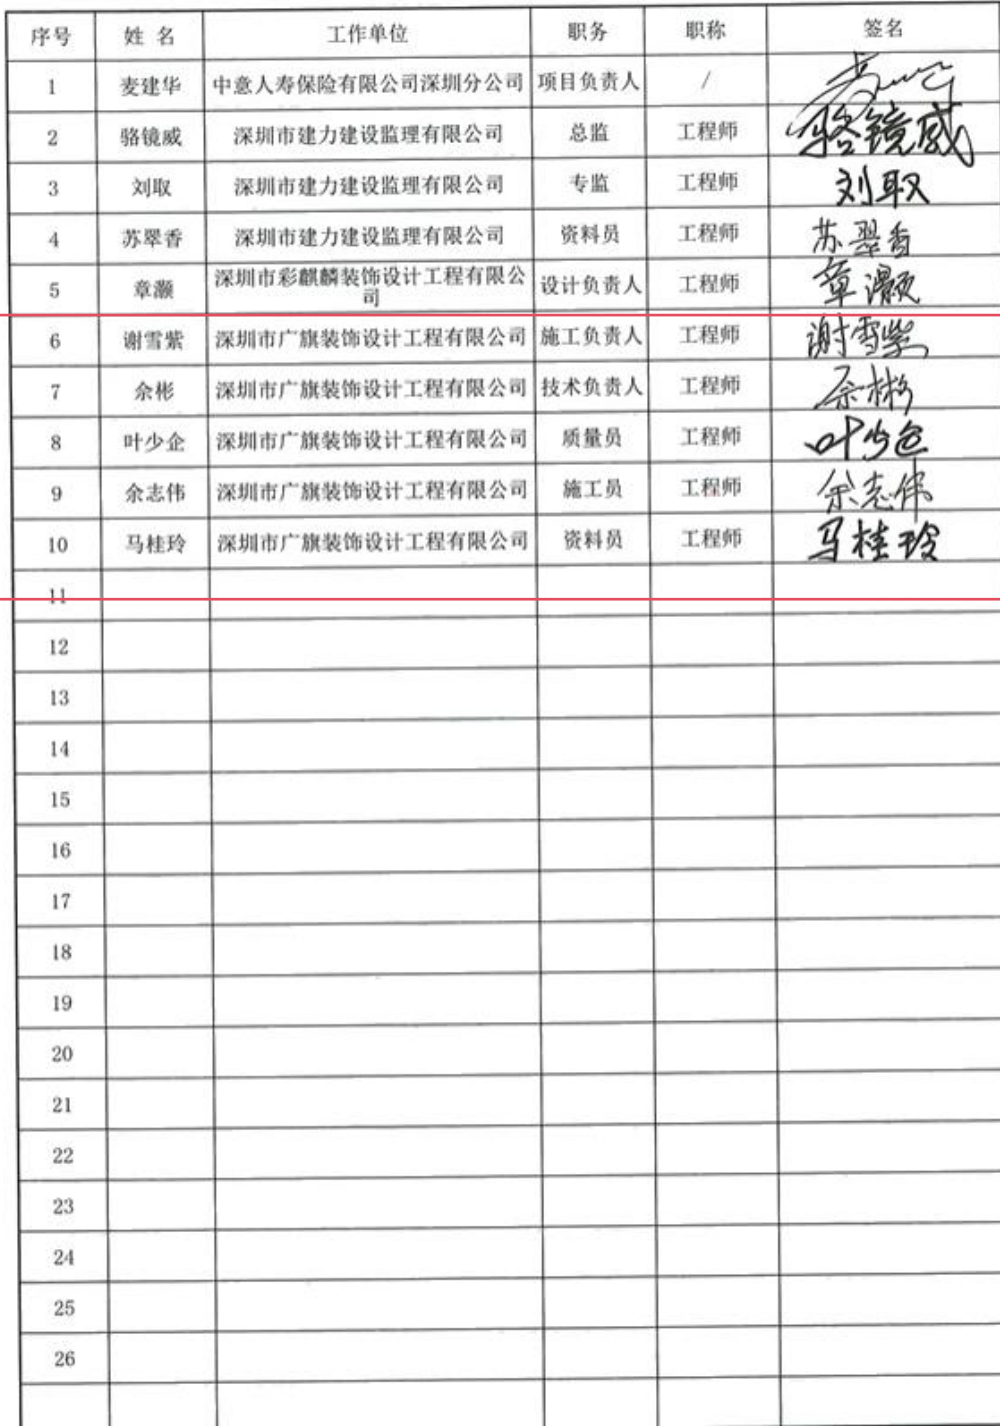 序号 姓 名 工作单位 职务 职称 签名
1 麦建华 中意人寿保险有限公司深圳分公司 项目负责人 /
2 骆镜威 深圳市建力建设监理有限公司 总监 工程师 骆镜威
3 刘取 深圳市建力建设监理有限公司 专监 工程师 刘取
4 苏翠香 深圳市建力建设监理有限公司 资料员 工程师 苏翠香
5 章灏 深圳市彩麒麟装饰设计工程有限公
司 设计负责人 工程师 章灏
6 谢雪紫 深圳市广旗装饰设计工程有限公司 施工负责人 工程师 谢雪紫
7 余彬 深圳市广旗装饰设计工程有限公司 技术负责人 工程师 余彬
8 叶少企 深圳市广旗装饰设计工程有限公司 质量员 工程师 叶少企
9 余志伟 深圳市广旗装饰设计工程有限公司 施工员 工程师 余志伟
10 马桂玲 深圳市广旗装饰设计工程有限公司 资料员 工程师 马桂玲
11
12
13
14
15
16
17
18
19
20
21
22
23
24
25
26